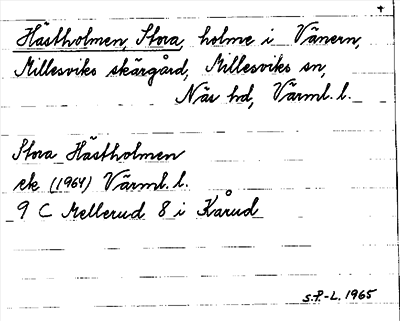 +
Hästholmen, Stora, holme i Vänern,
Millesviks skärgård, Millesviks sn,
Näs hd, Värml. l.
Stora Hästholmen
ek (1964) Värml. l.
9 C Mellerud 8 i Kårud
S.P.-L. 1965